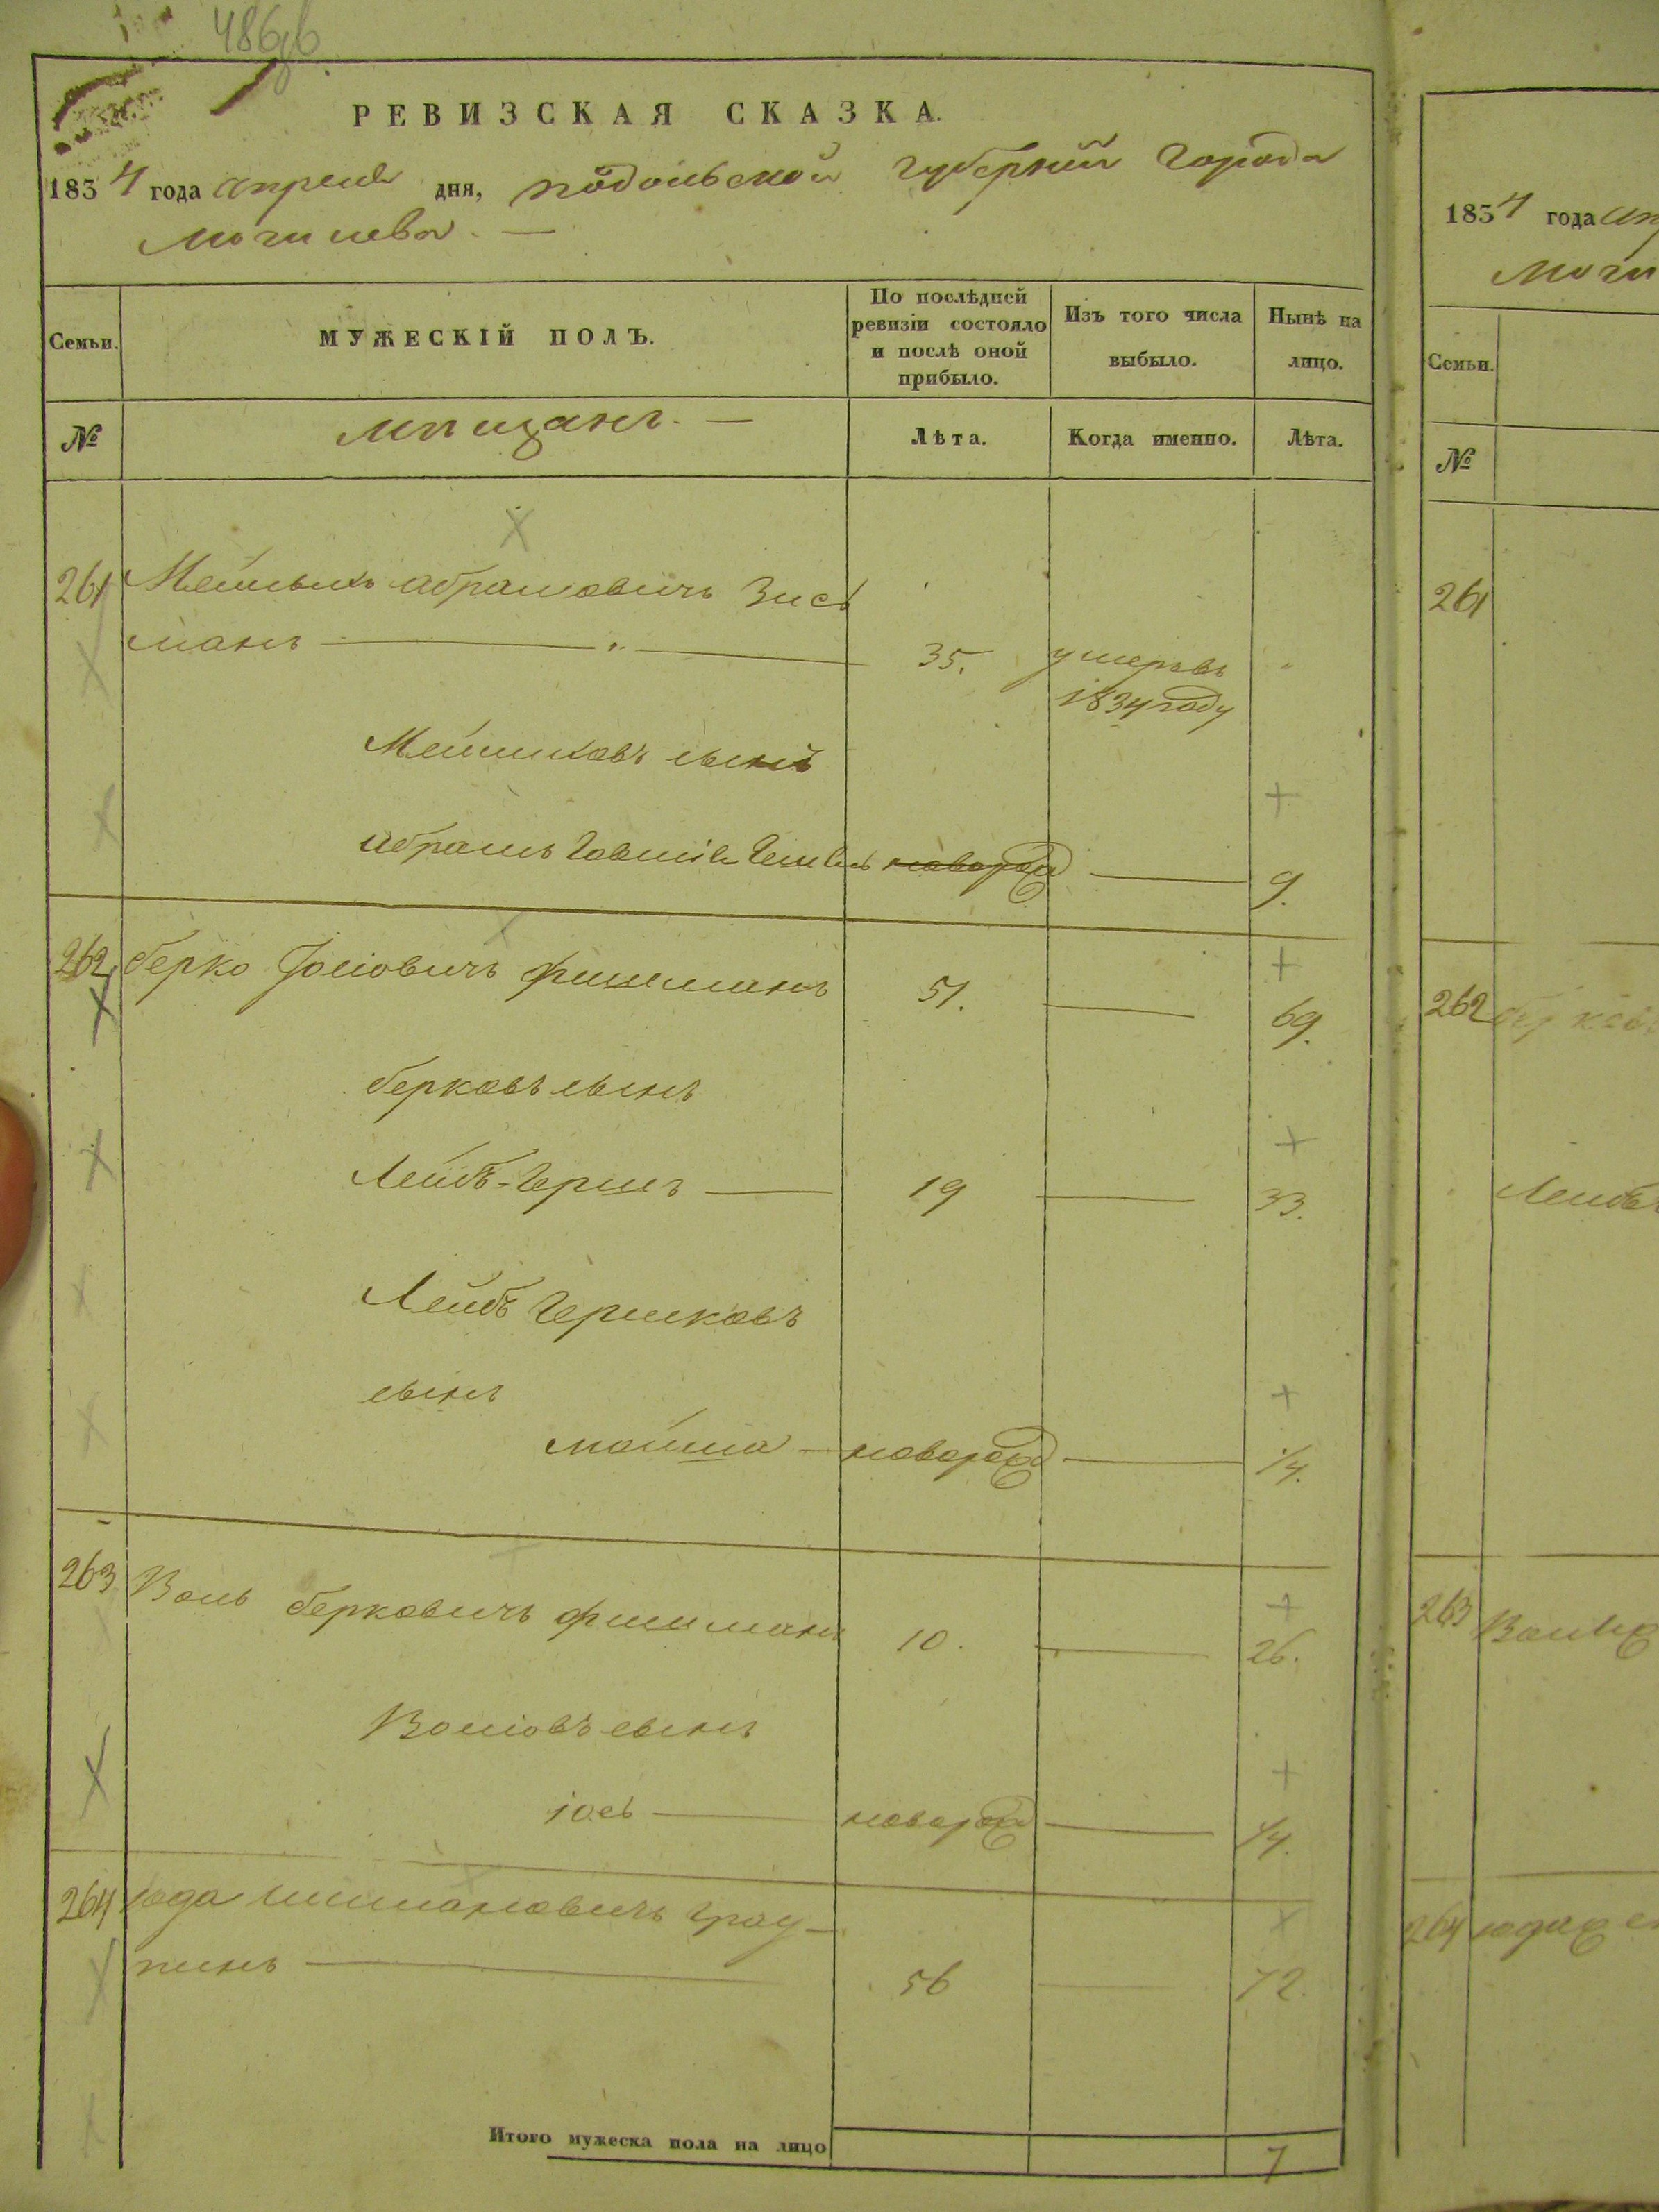 486об
РЕВИЗСКАЯ СКАЗКА.
1834 года апреля дня, подольской губернии города
могилева. —
Семьи.
МУЖЕСКІЙ ПОЛЪ.
По послѣдней ревизіи состояло и послѣ оной прибыло.
Изъ того числа выбыло.
Нынѣ на лицо.
№
мпщанъ. —
Лѣта.
Когда именно.
Лѣта.
261 Мейлихъ абрамовичъ Зись
манъ — 35. умеръ въ
1834 году
Мейлиховъ сынъ
абрамъ новорожд — 9.
262 берко Іосіовичъ фишманъ 51. — 69.
берковъ сынъ
Лейбъ-Гершъ — 19 — 33.
Лейбъ Гершковъ
сынъ
мойша — новорожд — 1/4.
263 Воль берковичъ фишманъ 10. — 26.
Воліовъ сынъ
іось — новорожд — 1/4.
264 юда шимановичъ
— 56 — 72.
Итого мужеска пола на лицо 7
1834 года
Семьи.
№
261
262
Лейбъ
263
264